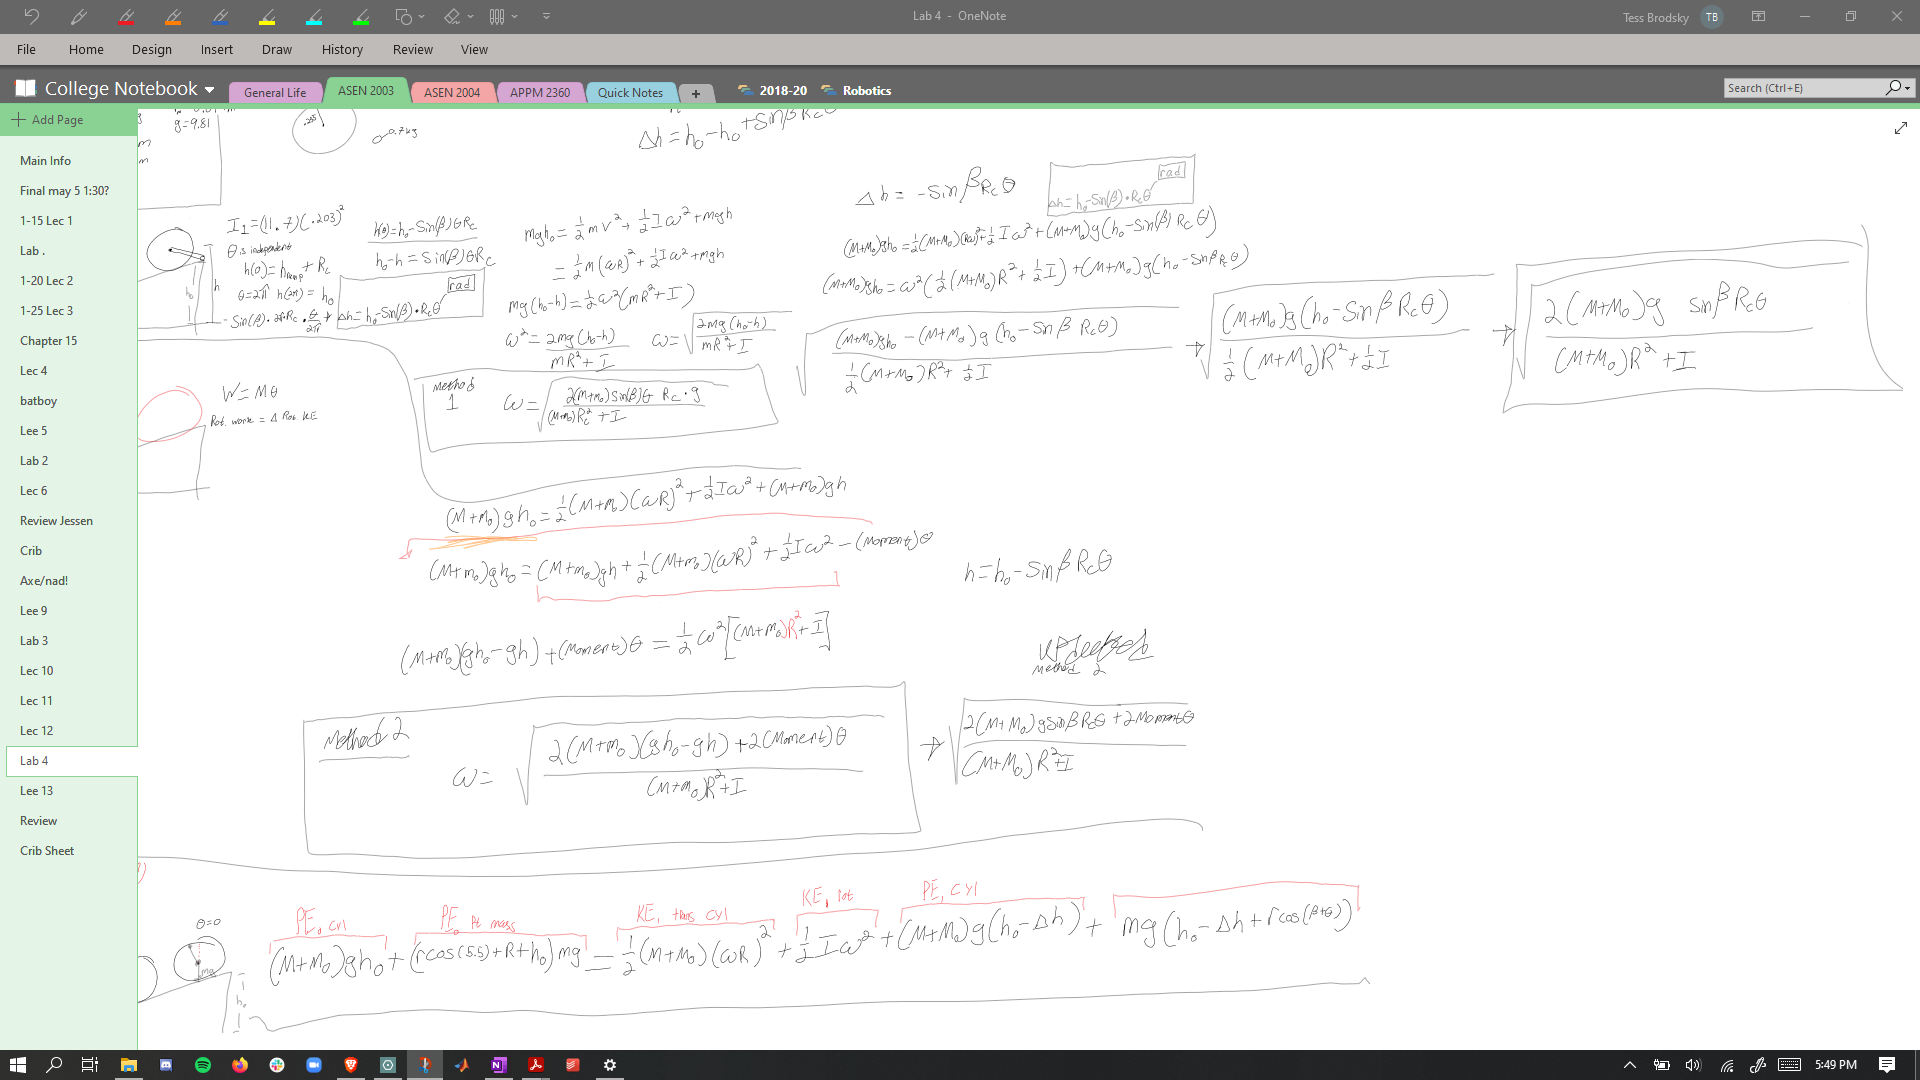 Lab 4 - OneNote
Tess Brodsky TB
File Home Design Insert Draw History Review View
College Notebook
General Life ASEN 2003 ASEN 2004 APPM 2360 Quick Notes + 2018-20 Robotics
Search (Ctrl+E)
Add Page
Main Info
Final may 5 1:30?
1-15 Lec 1
Lab .
1-20 Lec 2
1-25 Lec 3
Chapter 15
Lec 4
batboy
Lee 5
Lab 2
Lec 6
Review Jessen
Crib
Axe/nad!
Lee 9
Lab 3
Lec 10
Lec 11
Lec 12
Lab 4
Lee 13
Review
Crib Sheet
g=9.81
m
m
0.7kg
Δh = h₀-h₀ + sinβ R_cθ
I₁=(11.7)(.203)²
θ is independent
h(0)= h_ramp + R_c
θ=2π h(2π) = h₀
-Sin(β)·2πR_c·θ/2π
h(θ)=h₀-Sin(β)θR_c
h₀-h = Sin(β)θR_c
rad
Δh=h₀-Sin(β)·R_cθ
mgh₀ = 1/2 mv² + 1/2 Iω² + mgh
= 1/2 m(ωR)² + 1/2 Iω² + mgh
mg(h₀-h) = 1/2 ω²(mR²+I)
ω² = 2mg(h₀-h) / mR²+I
ω = √(2mg(h₀-h) / mR²+I)
Method 1 ω = √(2(M+m₀)sin(β)θ R_c·g / (M+m₀)R_c²+I)
W=Mθ
Rot. work = Δ Rot. KE
Δh = -sinβR_cθ
rad
Δh=h₀-Sin(β)·R_cθ
(M+M₀)gh₀ = 1/2(M+M₀)(Rω)²+1/2Iω²+(M+M₀)g(h₀-Sin(β)R_cθ)
(M+M₀)gh₀=ω²(1/2(M+M₀)R²+1/2I)+(M+M₀)g(h₀-SinβR_cθ)
√((M+M₀)gh₀-(M+M₀)g(h₀-Sinβ R_cθ) / 1/2(M+M₀)R²+1/2I)
→ √((M+M₀)g(h₀-SinβR_cθ) / 1/2(M+M₀)R²+1/2I)
→ √(2(M+M₀)g sinβR_cθ / (M+M₀)R²+I)
(M+m₀)gh₀=1/2(M+m₀)(ωR)²+1/2Iω²+(M+m₀)gh
(M+m₀)gh₀=(M+m₀)gh+1/2(M+m₀)(ωR)²+1/2Iω²-(Moment)θ
h=h₀-SinβR_cθ
(M+m₀)(gh₀-gh)+(Moment)θ = 1/2ω²[(M+m₀)R²+I]
Method 2
Method 2
ω= √(2(M+m₀)(gh₀-gh)+2(Moment)θ / (M+m₀)R²+I)
→ √(2(M+M₀)gSinβR_cθ+2Momentθ / (M+M₀)R²+I)
PE₀ cyl PE₀ pt mass KE, trans cyl KE, rot PE, cyl
θ=0
(M+M₀)gh₀+(rcos(5.5)+R+h₀)mg=1/2(M+M₀)(ωR)²+1/2Iω²+(M+M₀)g(h₀-Δh)+mg(h₀-Δh+rcos(β+θ))
mg
h₀
5:49 PM